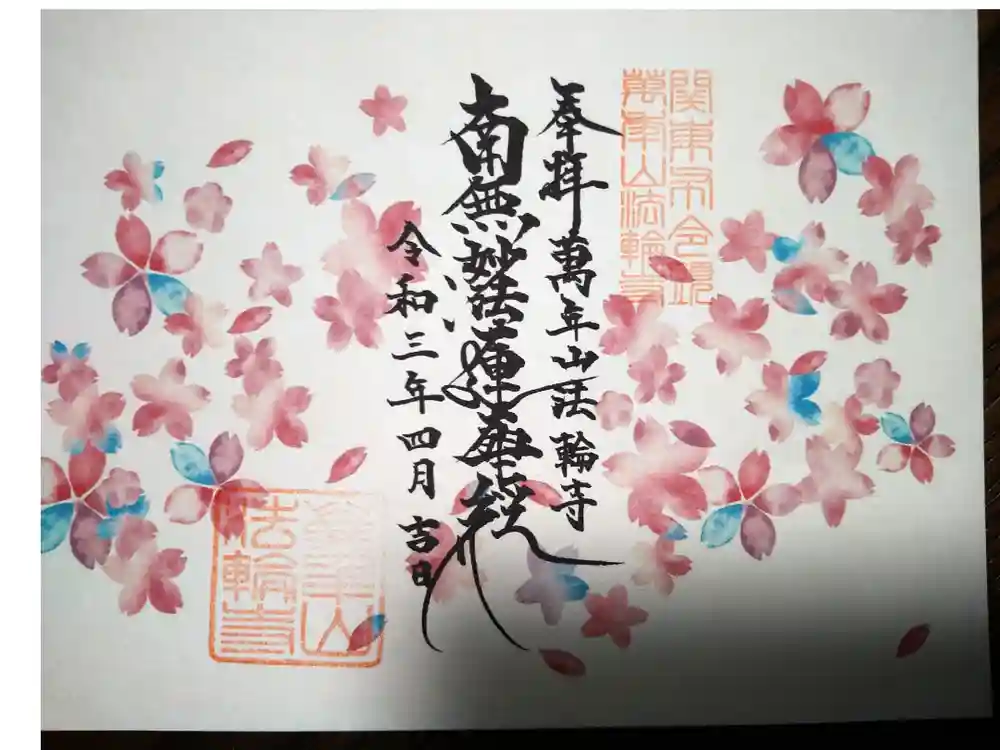 関東令
萬年山法輪寺
奉拝 萬年山法輪寺
南無妙法蓮華経
令和三年四月吉日
萬年山
法輪寺